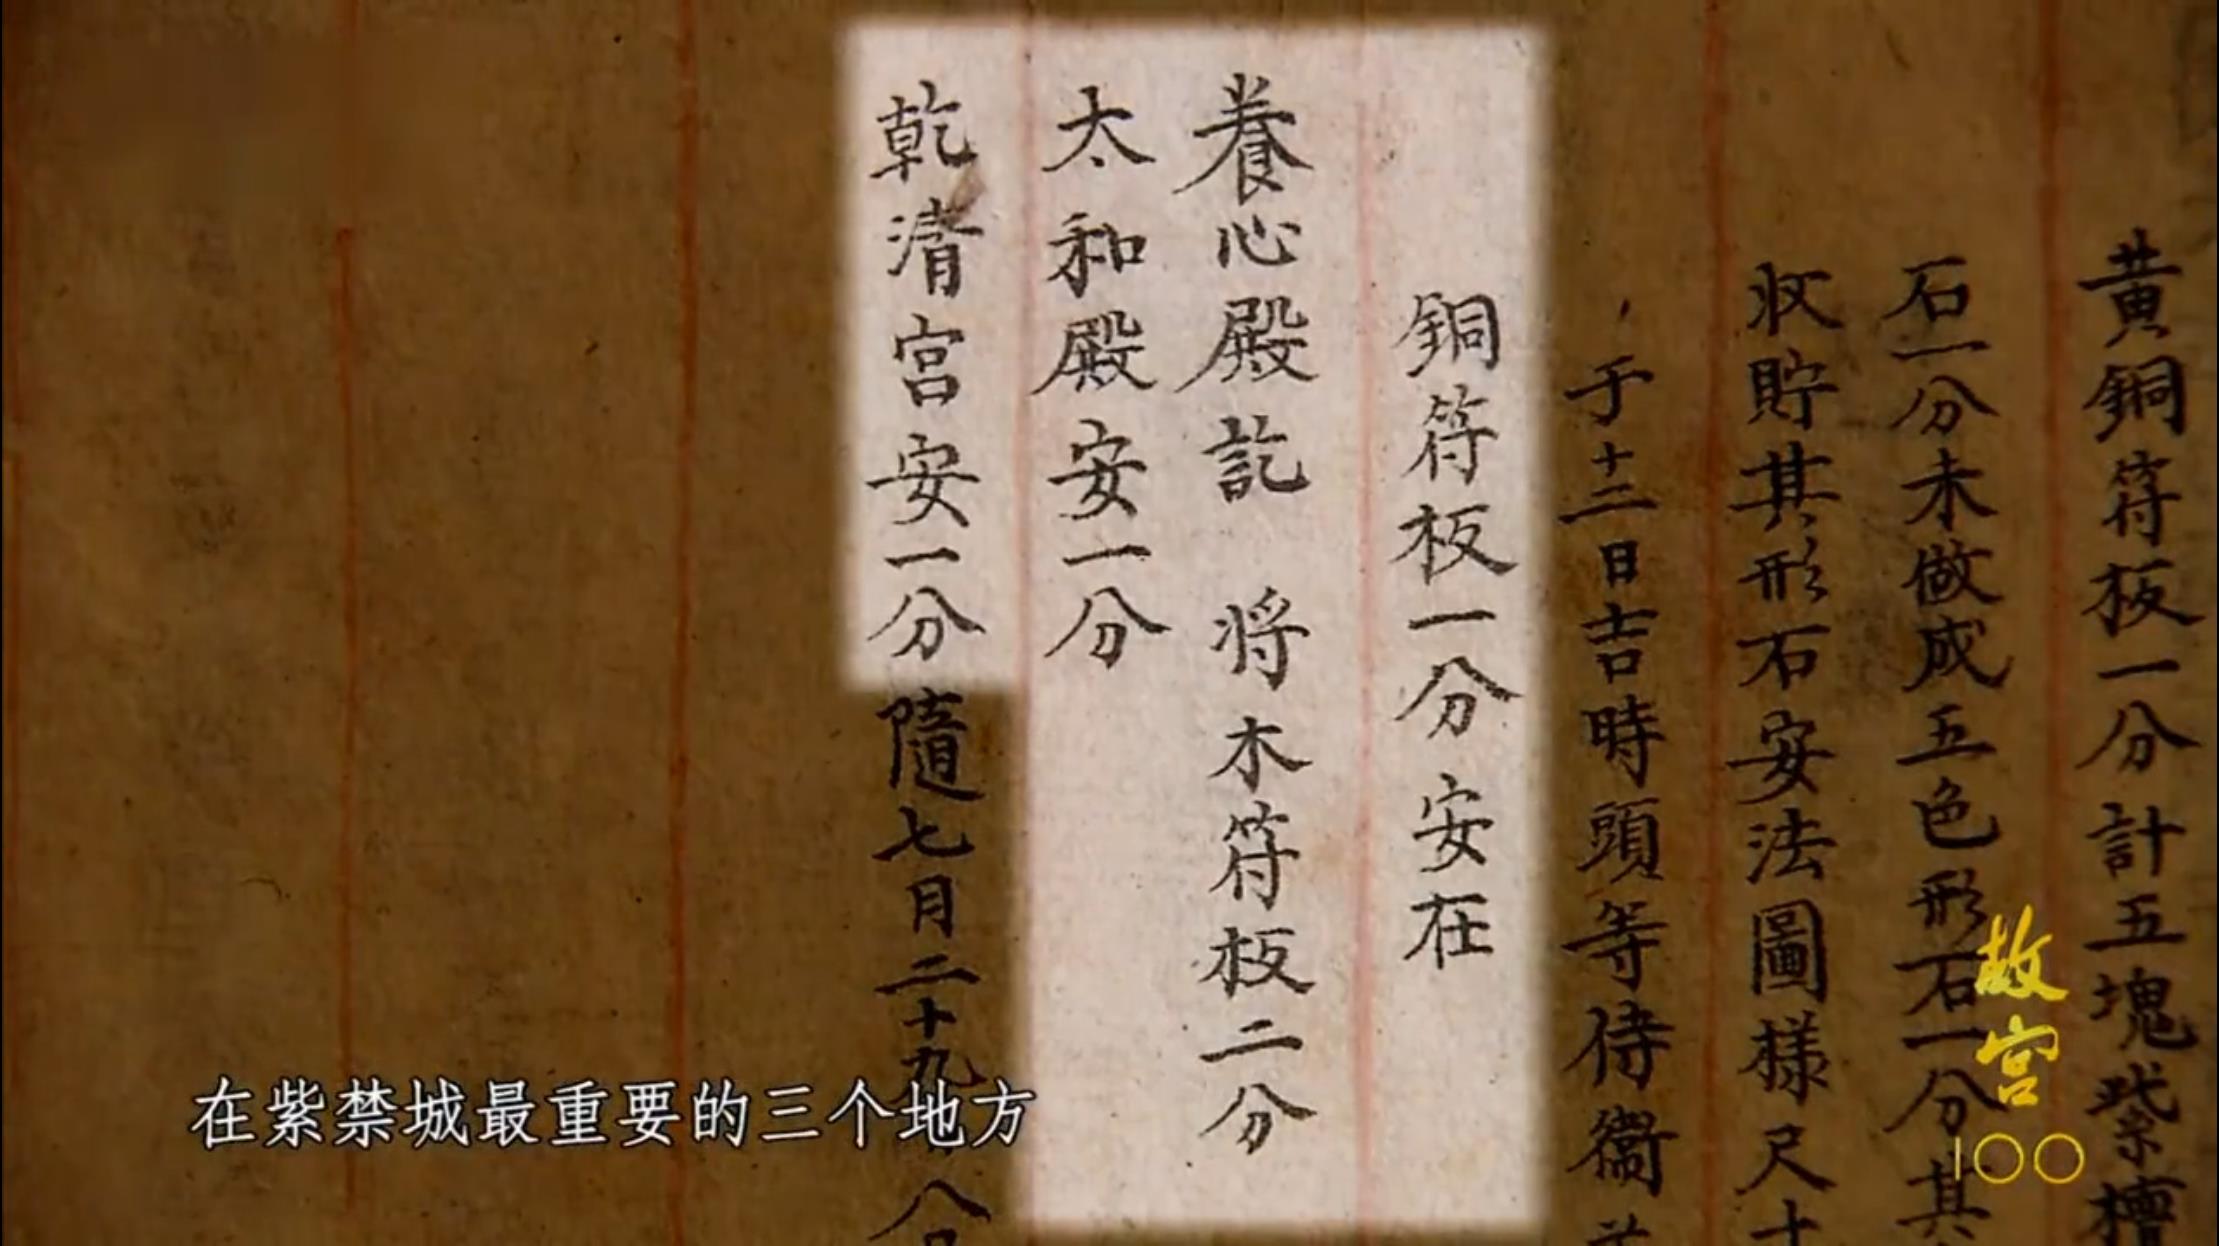 黄銅符板一分計五塊紫檀
石一分未做成五色形石一分其
收貯其形石安法圖樣尺寸
于十二日吉時頭等侍衛
銅符板一分安在
養心殿訖 將木符板二分
太和殿安一分
乾清宮安一分隨七月二十九
在紫禁城最重要的三个地方
故宫
100